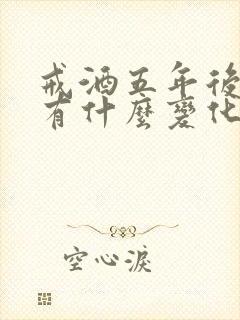 戒酒五年後
有什麼變化
空心淚